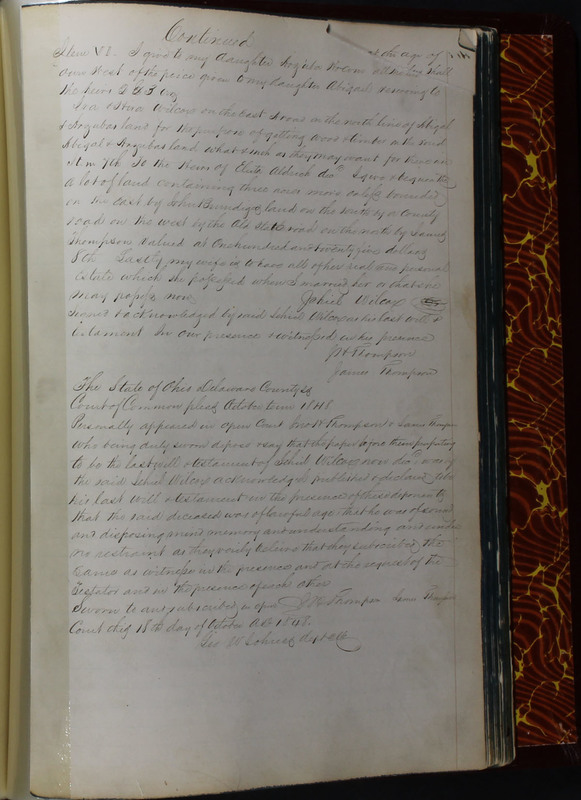 Continued
Item VI. I give to my daughter at the age of
West of the peice given to my daughter Abigail
the heirs
Wilcox on the East across on the north line of Abigal
& land for the purpose of getting wood & timber on the said
Abigal & land what & such as they may want for their own
Item 7th To the Heirs of Aldrich decd I give & bequeath
a lot of land containing three acres more or less bounded
on the East by John land on the South by a County
road on the west by the Old State road on the north by
Thompson valued at One hundred and twenty five dollars
8th Lastly my wife is to have all of her real and personal
Estate which she possessed when I married her or that she
may possess now Wilcox
Signed & acknowledged by said Wilcox as his last will &
testament in our presence & witnessed in his presence
Thompson
James Thompson
The State of Ohio Delaware County ss
Court of Common pleas October term 1848
Personally appeared in open Court Thompson & James Thompson
who being duly sworn depose & say that the paper before them purporting
to be the last will & testament of Wilcox now decd was by
the said Wilcox acknowledged published & declared to be
his last will & testament in the presence of these deponents
that the said deceased was of lawful age that he was of sound
and disposing mind, memory and understanding and under
no restraint as they verily believe that they subscribed the
same as witnesses in the presence and at the request of the
Testator and in the presence of each other
Sworn to and subscribed in open Thompson James Thompson
Court this 18th day of October AD 1848.
Geo W